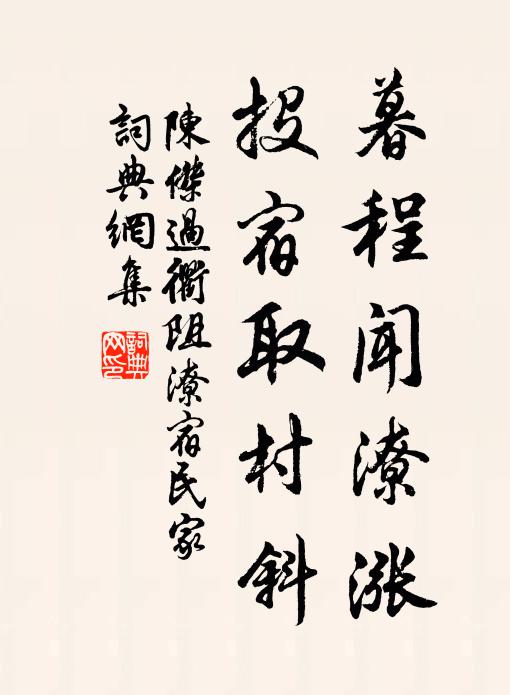 暮程聞潦漲
投宿取村斜
陳傑過衢阻潦宿民家
詞典網集
詞典網印